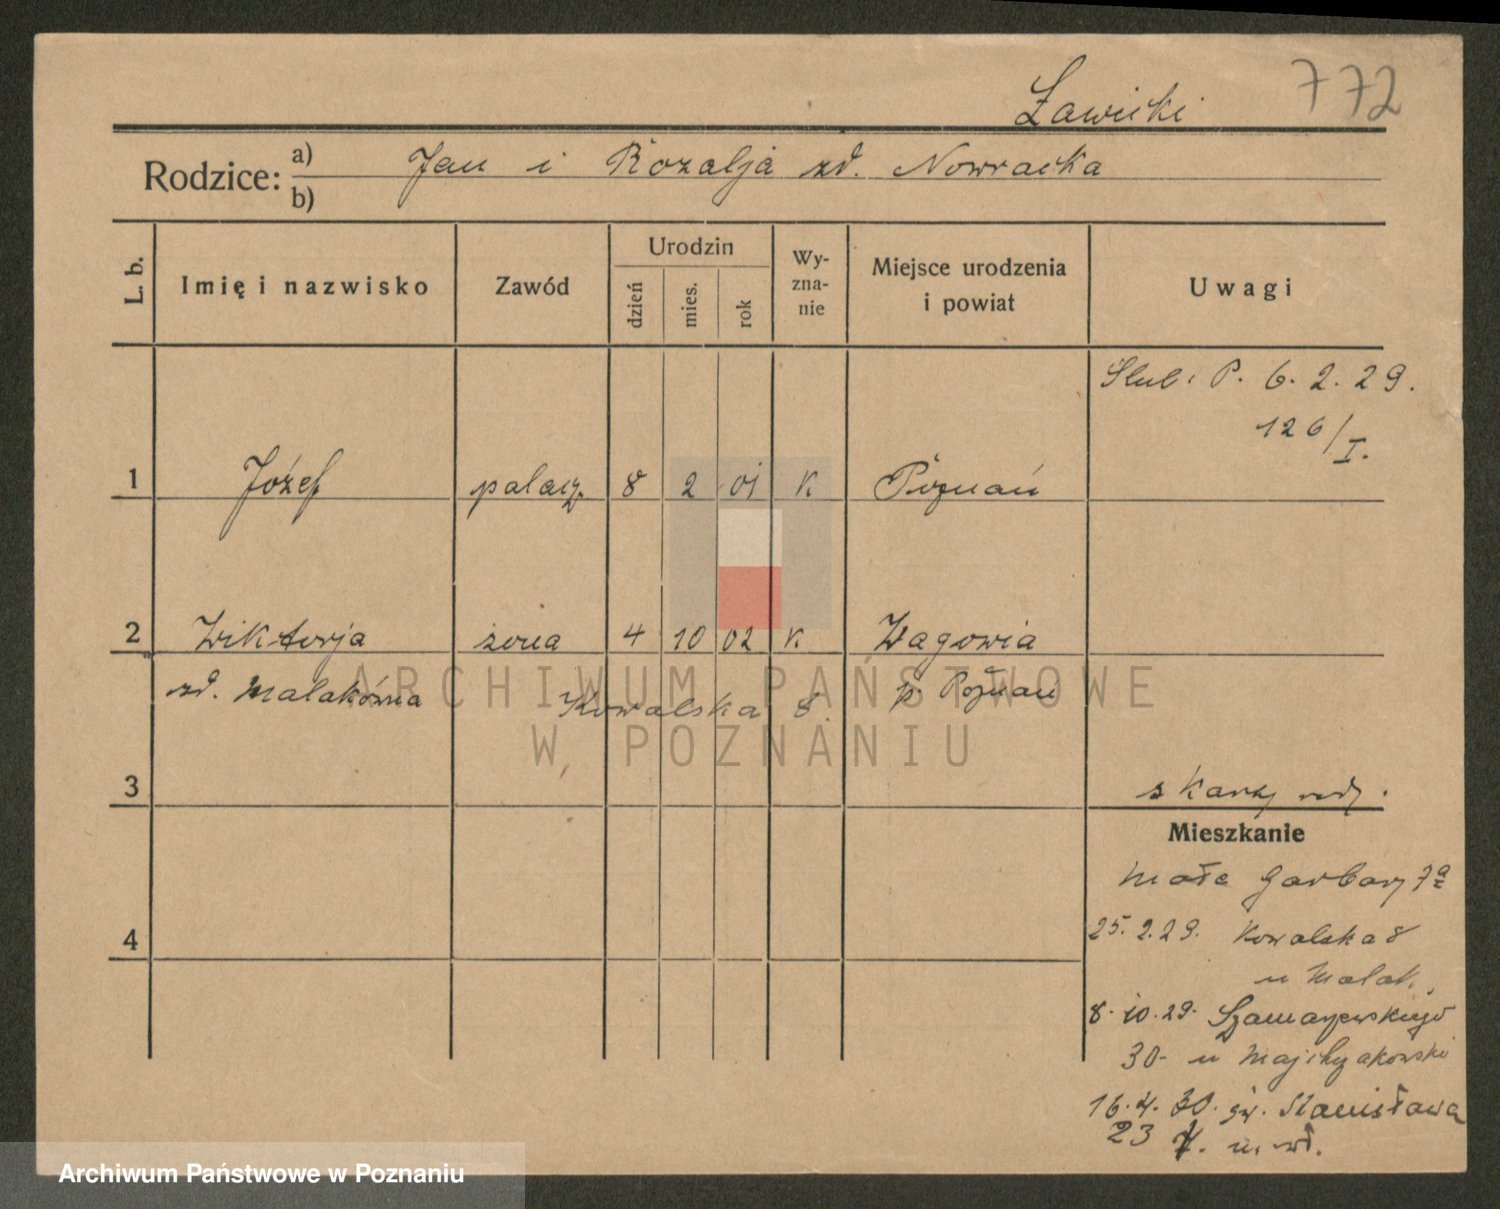 772
Ławicki
Rodzice: a) Jan i Rozalja zd. Nowracka
b)
L. b. Imię i nazwisko Zawód Urodzin dzień mies. rok Wyznanie Miejsce urodzenia i powiat Uwagi
Ślub: P. 6. 2. 29.
126/I.
1 Józef palacz. 8 2 01 K Poznań
2 Wiktorja żona 4 10 02 K Wagowia
zd. Malakówna Kowalska 8. p. Poznań
3
Mieszkanie
Małe Garbary 7a
4
25. 2. 29. Kowalska 8
u Malak.
8. 10. 29. Szamarzewskiego
30 u
16. 4. 30. św. Stanisława
23
ARCHIWUM PAŃSTWOWE
W POZNANIU
Archiwum Państwowe w Poznaniu